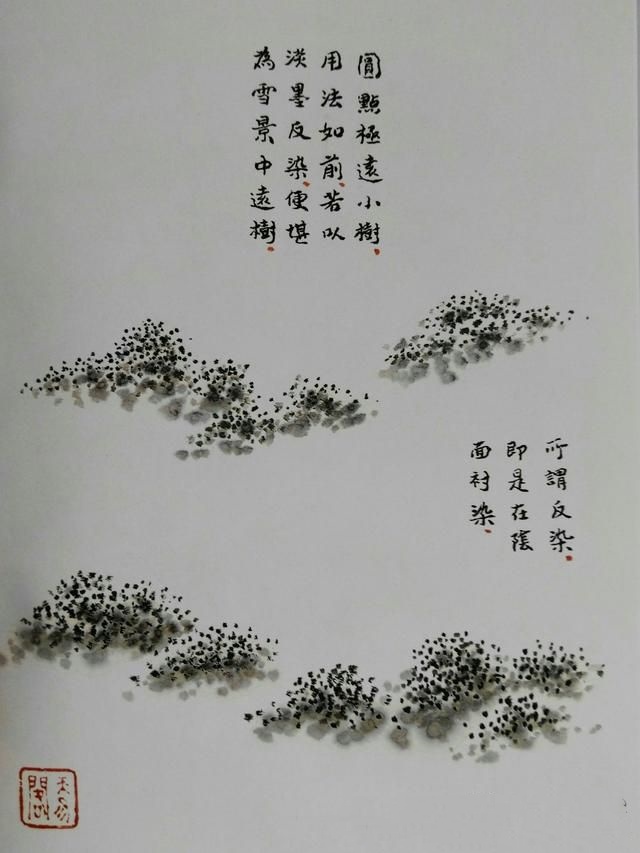 圓點極遠小樹.
用法如前.若以
淡墨反染.便堪
為雪景中遠樹.
所謂反染.
即是在陰
面襯染.